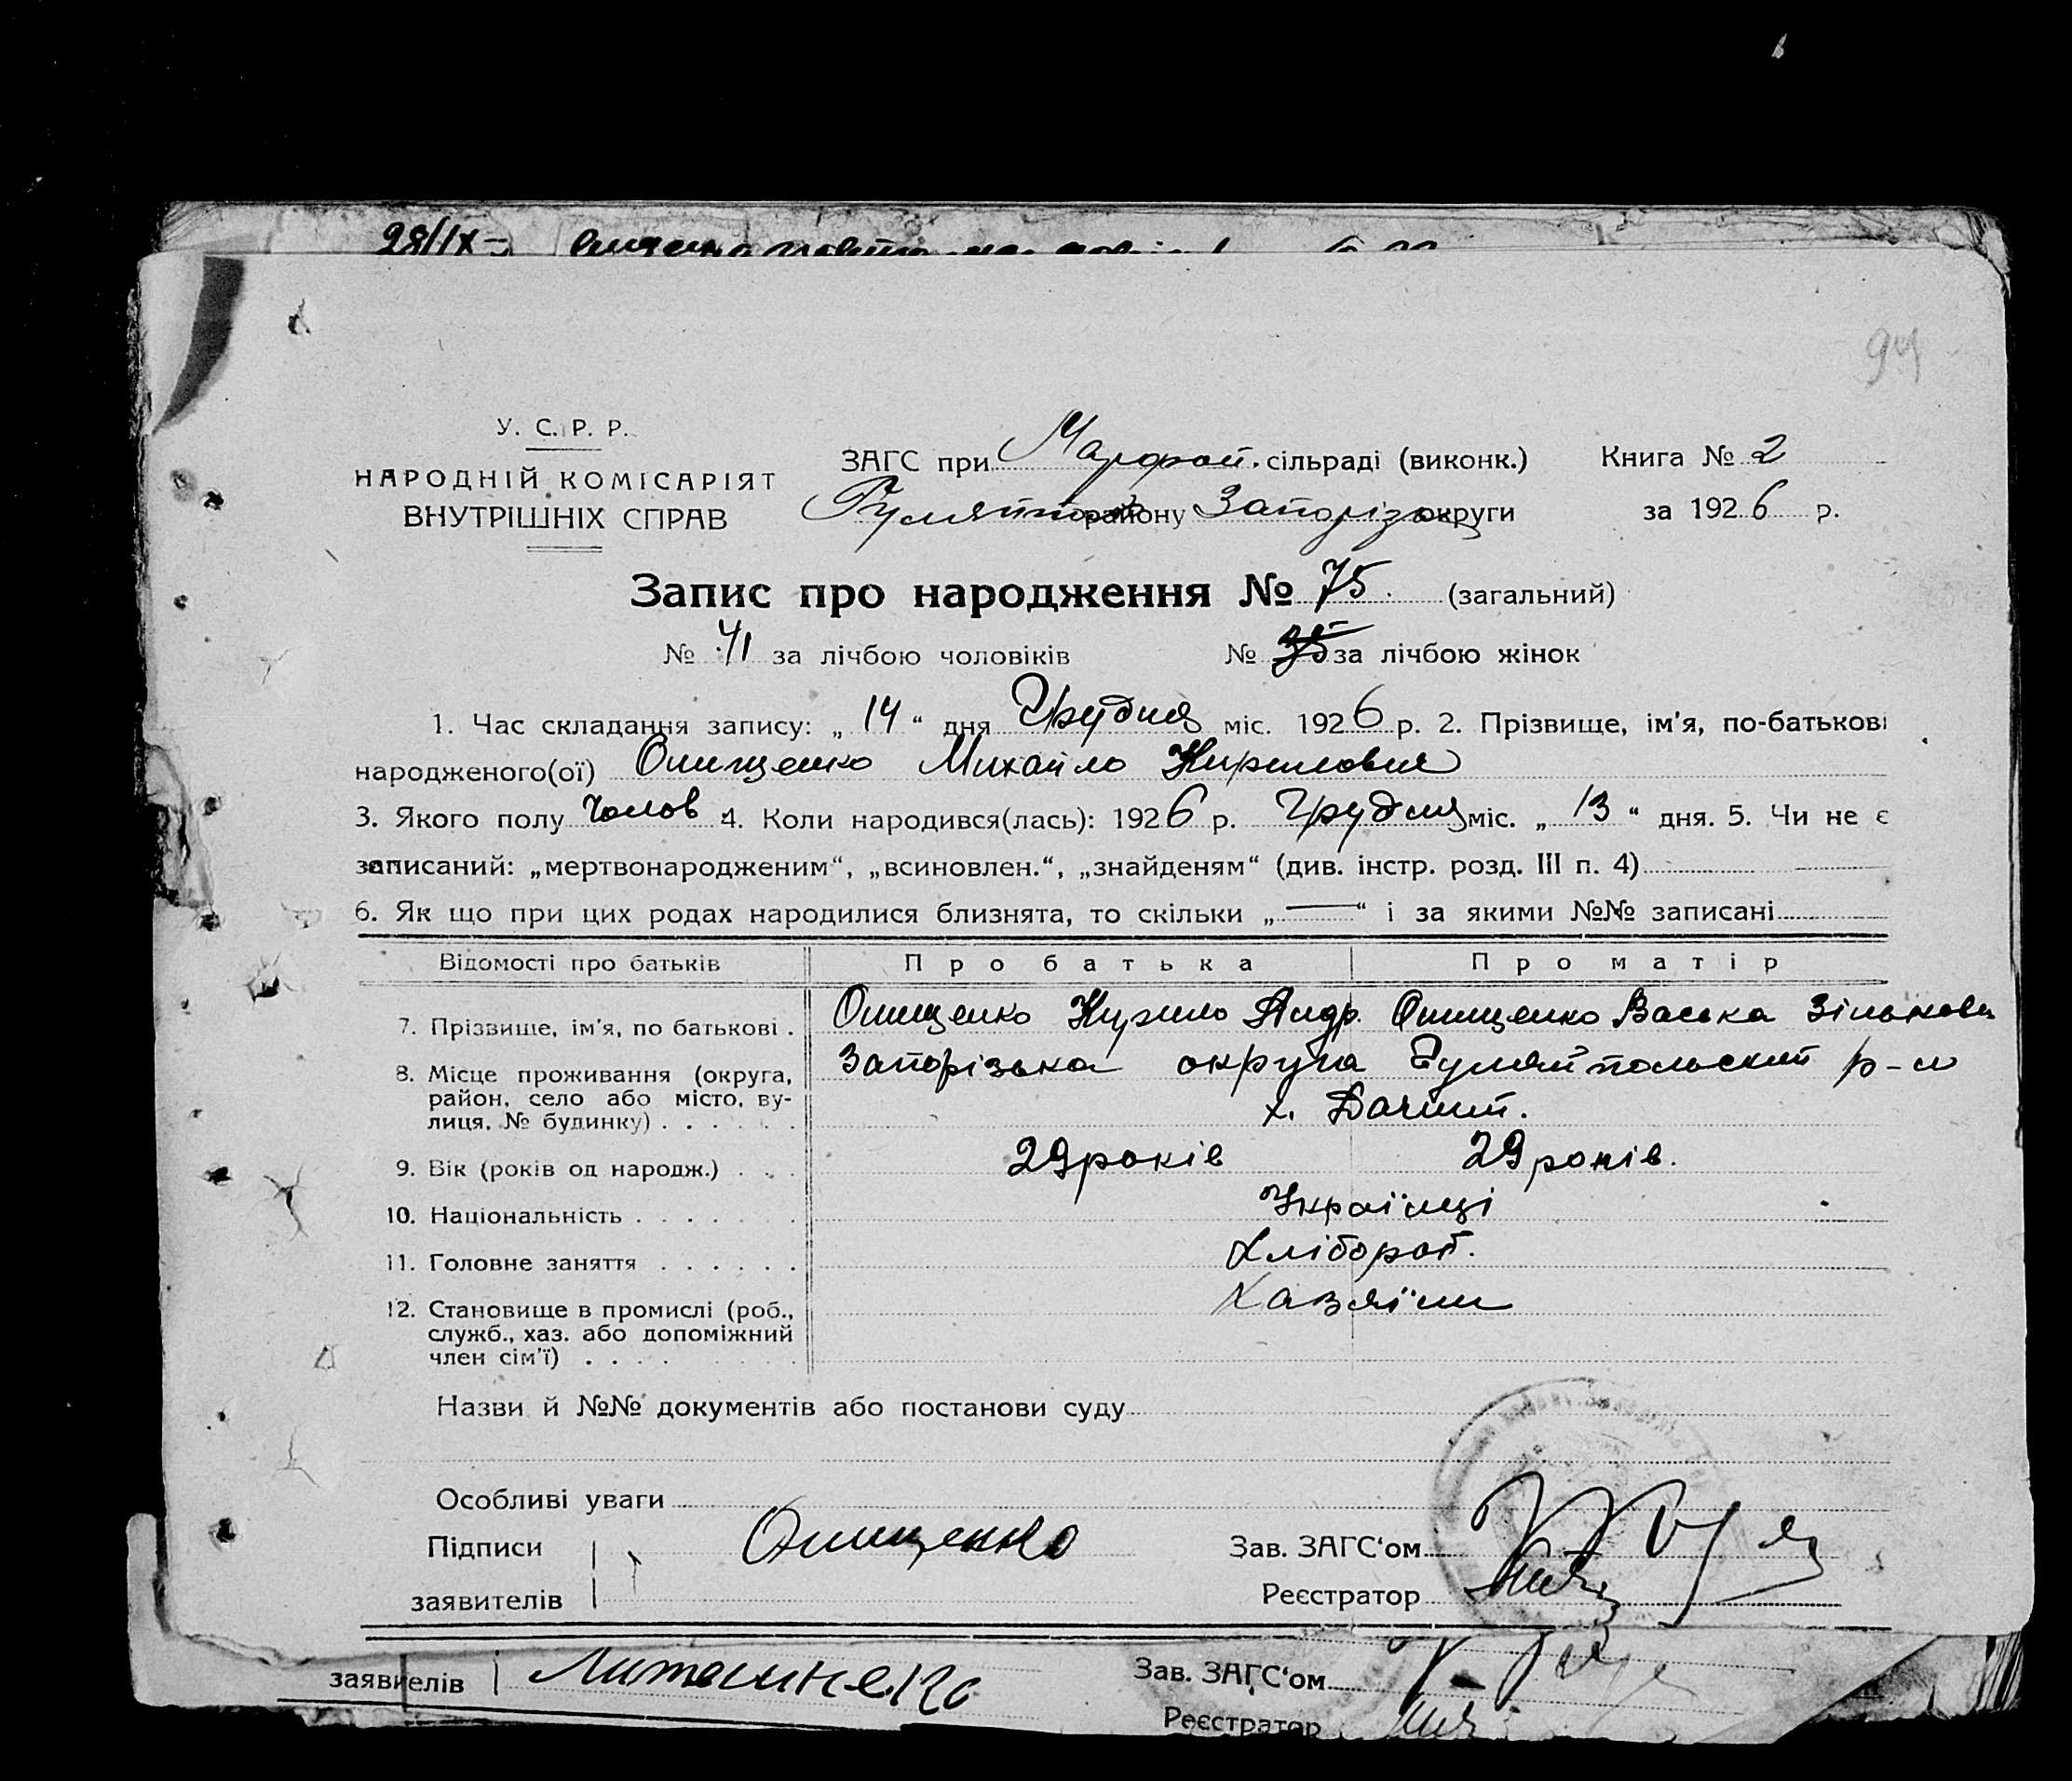 94
У. С. Р. Р.
НАРОДНІЙ КОМІСАРІЯТ
ВНУТРІШНІХ СПРАВ
ЗАГС при Марфоп. сільраді (виконк.)
Гуляйпол району Запорізьк округи
Книга № 2
за 1926 р.
Запис про народження № 75. (загальний)
№ 41 за лічбою чоловіків № 35 за лічбою жінок
1. Час складання запису: „ 14 “ дня Грудня міс. 1926 р. 2. Прізвище, ім'я, по-батькові
народженого(ої) Онищенко Михайло Кирилович
3. Якого полу Чолов 4. Коли народився(лась): 1926 р. Грудня міс. „ 13 “ дня. 5. Чи не є
записаний: „мертвонародженим“, „всиновлен.“, „знайденям“ (див. інстр. розд. III п. 4)
6. Як що при цих родах народилися близнята, то скільки „ — “ і за якими №№ записані
Відомості про батьків Про батька Про матір
7. Прізвище, ім'я, по батькові . Онищенко Кирило Андр. Онищенко Васька Зіньков
8. Місце проживання (округа, Запорізька округа Гуляйпольский р-н
район, село або місто, ву- х.
лиця, № будинку) . . . . . .
9. Вік (років од народж.) . . . 29 років 29 років.
10. Національність . . . . . . Українці
11. Головне заняття . . . . . . Хлібороб.
12. Становище в промислі (роб., Хазяїни
служб., хаз. або допоміжний
член сім'ї) . . . .
Назви й №№ документів або постанови суду
Особливі уваги
Підписи Онищенко Зав. ЗАГС‘ом
заявителів Реєстратор
заявителів Литвиненко Зав. ЗАГС‘ом
Реєстратор